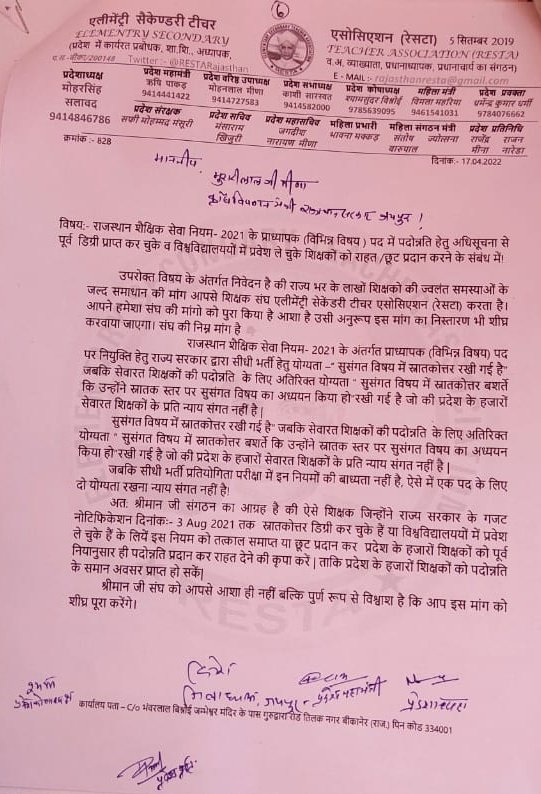 6
एलीमेंट्री सैकेण्डरी टीचर
ELEMENTRY SECONDARY
(प्रदेश में कार्यरत प्रबोधक, शा.शि., अध्यापक,
Twitter :- @RESTARajasthan
एसोसिएशन (रेसटा) 5 सितम्बर 2019
TEACHER ASSOCIATION (RESTA)
व.अ, व्याख्याता, प्रधानाध्यापक, प्रधानाचार्य का संगठन)
E - MAIL :- rajasthanresta@gmail.com
RESTA
प्रदेशाध्यक्ष
मोहरसिंह
सलावद
9414846786
प्रदेश महामंत्री
ऋषि पाकड़
9414441422
प्रदेश वरिष्ठ उपाध्यक्ष
मोहनलाल मीणा
9414727583
प्रदेश सभाध्यक्ष
काशी सारस्वत
9414582000
प्रदेश कोषाध्यक्ष
श्यामसुंदर विश्नोई
9785639095
महिला मंत्री
विमला महरिया
9461541031
प्रदेश प्रवक्ता
धर्मेन्द्र कुमार धर्मी
9784076662
प्रदेश संरक्षक
सफी मोहम्मद मंसूरी
प्रदेश सचिव
मंसाराम
खिजुरी
प्रदेश महासचिव
जगदीश
नारायण मीणा
महिला प्रभारी
भावना मक्कड़
महिला संगठन मंत्री
संतोष ज्योत्सना
बारुपाल
प्रदेश प्रतिनिधि
राजेंद्र राजन
मीना नारेडा
क्रमांक :- 828
दिनांक:- 17.04.2022
माननीय
मुरारीलाल जी मीणा
विषय:- राजस्थान शैक्षिक सेवा नियम- 2021 के प्राध्यापक (विभिन्न विषय ) पद में पदोन्नति हेतु अधिसूचना से
पूर्व डिग्री प्राप्त कर चुके व विश्वविद्यालयों में प्रवेश ले चुके शिक्षकों को राहत /छूट प्रदान करने के संबंध में!
उपरोक्त विषय के अंतर्गत निवेदन है की राज्य भर के लाखों शिक्षकों की ज्वलंत समस्याओं के
जल्द समाधान की मांग आपसे शिक्षक संघ एलीमेंट्री सेकेंडरी टीचर एसोसिएशन (रेसटा) करता है।
आपने हमेशा संघ की मांगो को पुरा किया है आशा है उसी अनुरूप इस मांग का निस्तारण भी शीघ्र
करवाया जाएगा। संघ की निम्न मांग है
राजस्थान शैक्षिक सेवा नियम- 2021 के अंतर्गत प्राध्यापक (विभिन्न विषय) पद
पर नियुक्ति हेतु राज्य सरकार द्वारा सीधी भर्ती हेतु योग्यता –" सुसंगत विषय में स्नातकोत्तर रखी गई है"
जबकि सेवारत शिक्षकों की पदोन्नति के लिए अतिरिक्त योग्यता " सुसंगत विषय में स्नातकोत्तर बशर्ते
कि उन्होंने स्नातक स्तर पर सुसंगत विषय का अध्ययन किया हो"रखी गई है जो की प्रदेश के हजारों
सेवारत शिक्षकों के प्रति न्याय संगत नहीं है |
सुसंगत विषय में स्नातकोत्तर रखी गई है" जबकि सेवारत शिक्षकों की पदोन्नति के लिए अतिरिक्त
योग्यता " सुसंगत विषय में स्नातकोत्तर बशर्ते कि उन्होंने स्नातक स्तर पर सुसंगत विषय का अध्ययन
किया हो"रखी गई है जो की प्रदेश के हजारों सेवारत शिक्षकों के प्रति न्याय संगत नहीं है |
जबकि सीधी भर्ती प्रतियोगिता परीक्षा में इन नियमों की बाध्यता नही है, ऐसे में एक पद के लिए
दो योग्यता रखना न्याय संगत नहीं है!
अत: श्रीमान जी संगठन का आग्रह है की ऐसे शिक्षक जिन्होंने राज्य सरकार के गजट
नोटिफिकेशन दिनांक:- 3 Aug 2021 तक स्नातकोत्तर डिग्री कर चुके हैं या विश्वविद्यालयों में प्रवेश
ले चुके हैं के लियें इस नियम को तत्काल समाप्त या छूट प्रदान कर प्रदेश के हजारों शिक्षकों को पूर्व
नियानुसार ही पदोन्नति प्रदान कर राहत देने की कृपा करें | ताकि प्रदेश के हजारों शिक्षकों को पदोन्नति
के समान अवसर प्राप्त हो सकें|
श्रीमान जी संघ को आपसे आशा ही नहीं बल्कि पुर्ण रूप से विश्वाश है कि आप इस मांग को
शीघ्र पूरा करेंगे।
जिलाध्यक्ष, जयपुर
प्रदेश महामंत्री
कार्यालय पता – C/o भंवरलाल बिश्नोई जम्भेश्वर मंदिर के पास गुरुद्वारा रोड तिलक नगर बीकानेर (राज.) पिन कोड 334001